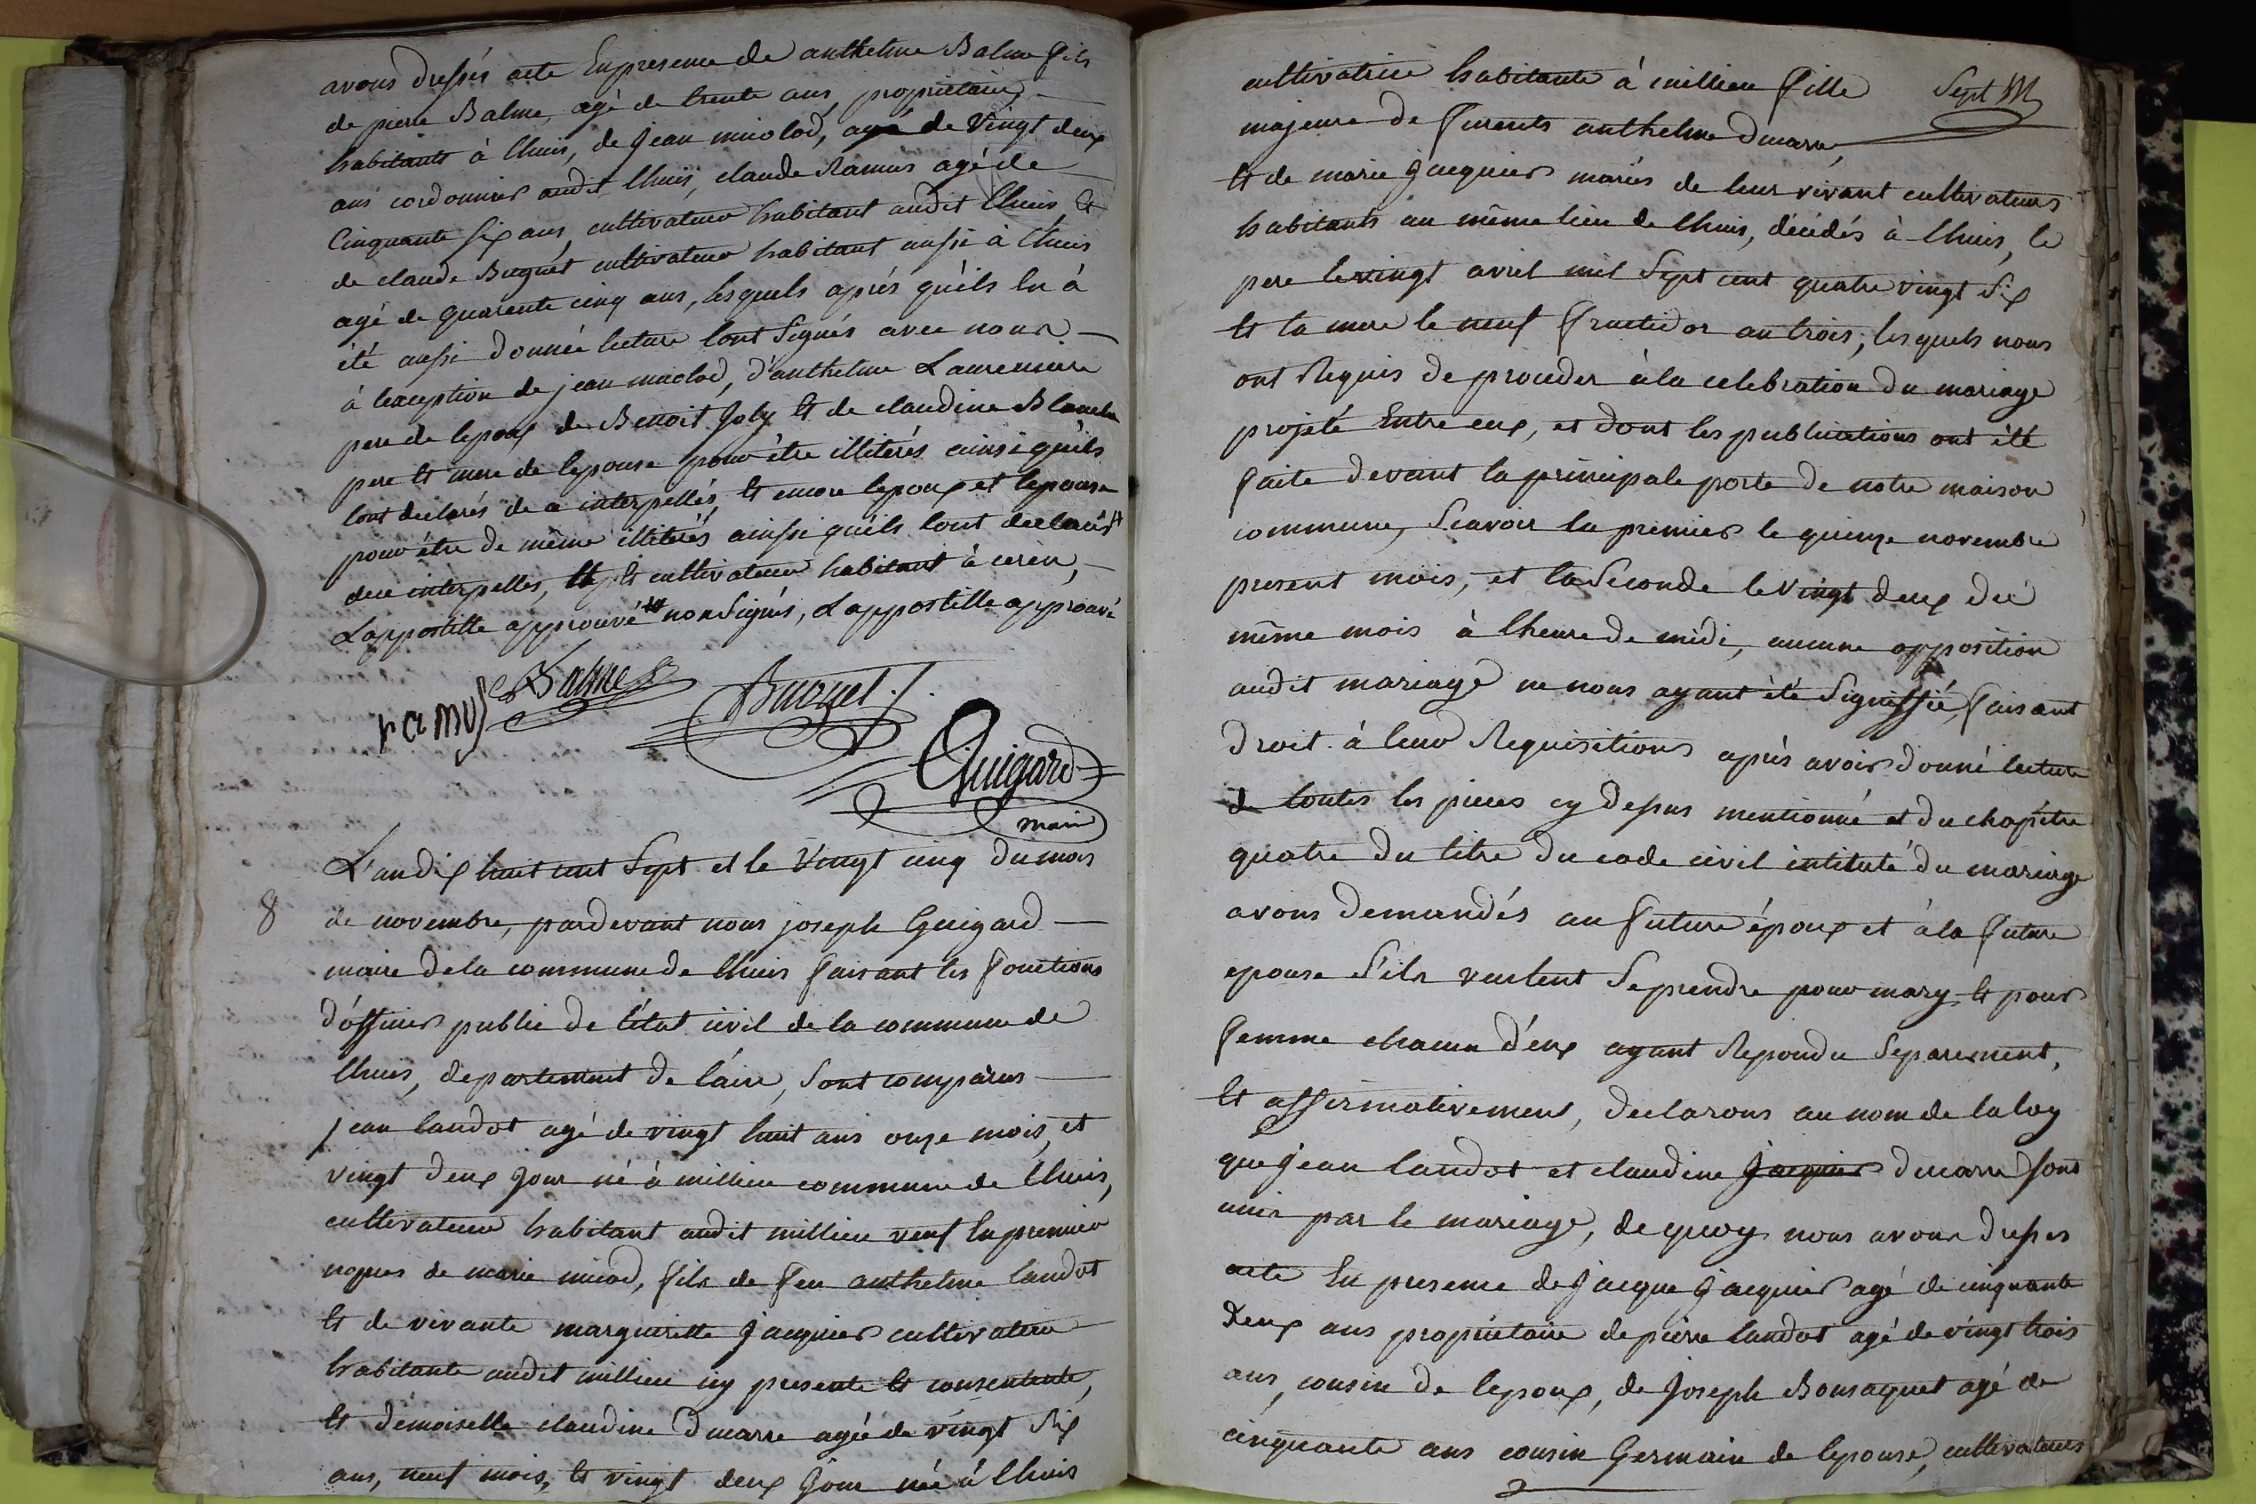 avons dressés acte En presence de anthelme Balme fils
de pierre Balme, agé de trente ans, propriétaire
habitants à lhuis, de jean miolod, agé de Vingt deux
ans cordonnier audit lhuis, claude Ramus agé de
Cinquante six ans, cultivateur habitant audit lhuis Et
de claude Buguet cultivateur habitant aussi à lhuis
agé de quarente cinq ans, lesquels aprés quéils lu à
été aussi donnée lecture lont signés avec nous
à lexception de jean miolod, d'anthelme
pere de lepoux de Benoit Joly Et de claudine
pere Et mere de lepouse pour être illiterés ainsi quéils
lont declarés de a interpellés, Et encore lepoux et lepouse
pour être de même illiterés ainssi quéils lont declarés
dece interpelles, Et cultivateur habitant à cerin,
Lappostille approuvé non signés, Lappostille approuvé
ramus Balme Buguet Guigard
maire
L'an dix huit cent Sept et le Vingt cinq du mois
8 de novembre, pardevant nous joseph Guigard
maire de la commune de lhuis faisant les fonctions
d'officier public de l'état civil de la commune de
lhuis, departement de láin, sont comparus
jean landot agé de vingt huit ans onze mois, et
vingt deux jour né à millieu commune de lhuis,
cultivateur habitant audit millieu veuf En premier
nopces de marie miod, fils de feu anthelme landot
Et de vivante margueritte jacquier cultivatrice
habitante audit millieu icy presente Et consentante,
Et demoiselle claudine Ducarre agée de vingt six
ans, neuf mois, Et vingt deux jour née à lhuis
cultivatrice habitante à millieu fille Sept M
majeure de furents anthelme Ducarre,
Et de marie jacquier mariés de leur vivant cultivateurs
habitants au même lieu de lhuis, décédés à lhuis, le
pere le vingt avril mil Sept cent quatre vingt Six
Et la mere le neuf fructidor an trois; lesquels nous
ont Requis de proceder à la celebration du mariage
projeté Entre eux, et dont les publications ont été
faite devant la principale porte de notre maison
commune, Scavoir la premier le quinze novembre
present mois, et la Seconde le vingt deux du
même mois à lheure de midi, aucune opposition
audit mariage ne nous ayant été Signiffié, faisant
droit à leur Requisitions aprés avoir donné lecture
de toutes les pieces cy dessus mentionné et du chapitre
quatre du titre du code civil intitulé du mariage
avons demandés au future époux et à la future
epouse S'ils veulent Se prendre pour mary Et pour
femme chacun d'éux ayant Repondu Separement,
Et affirmativement, declarons au nom de la loy
que jean landot et claudine jacquier ducarre sont
unis par le mariage, de quoy nous avons dresses
acte En presence de jacque jacquier agé de cinquante
deux ans propriétaire de pierre landot agé de vingt trois
ans, cousin de lepoux, de joseph Bonsaquet agé de
cinquante ans cousin Germain de lepouse, cultivateurs